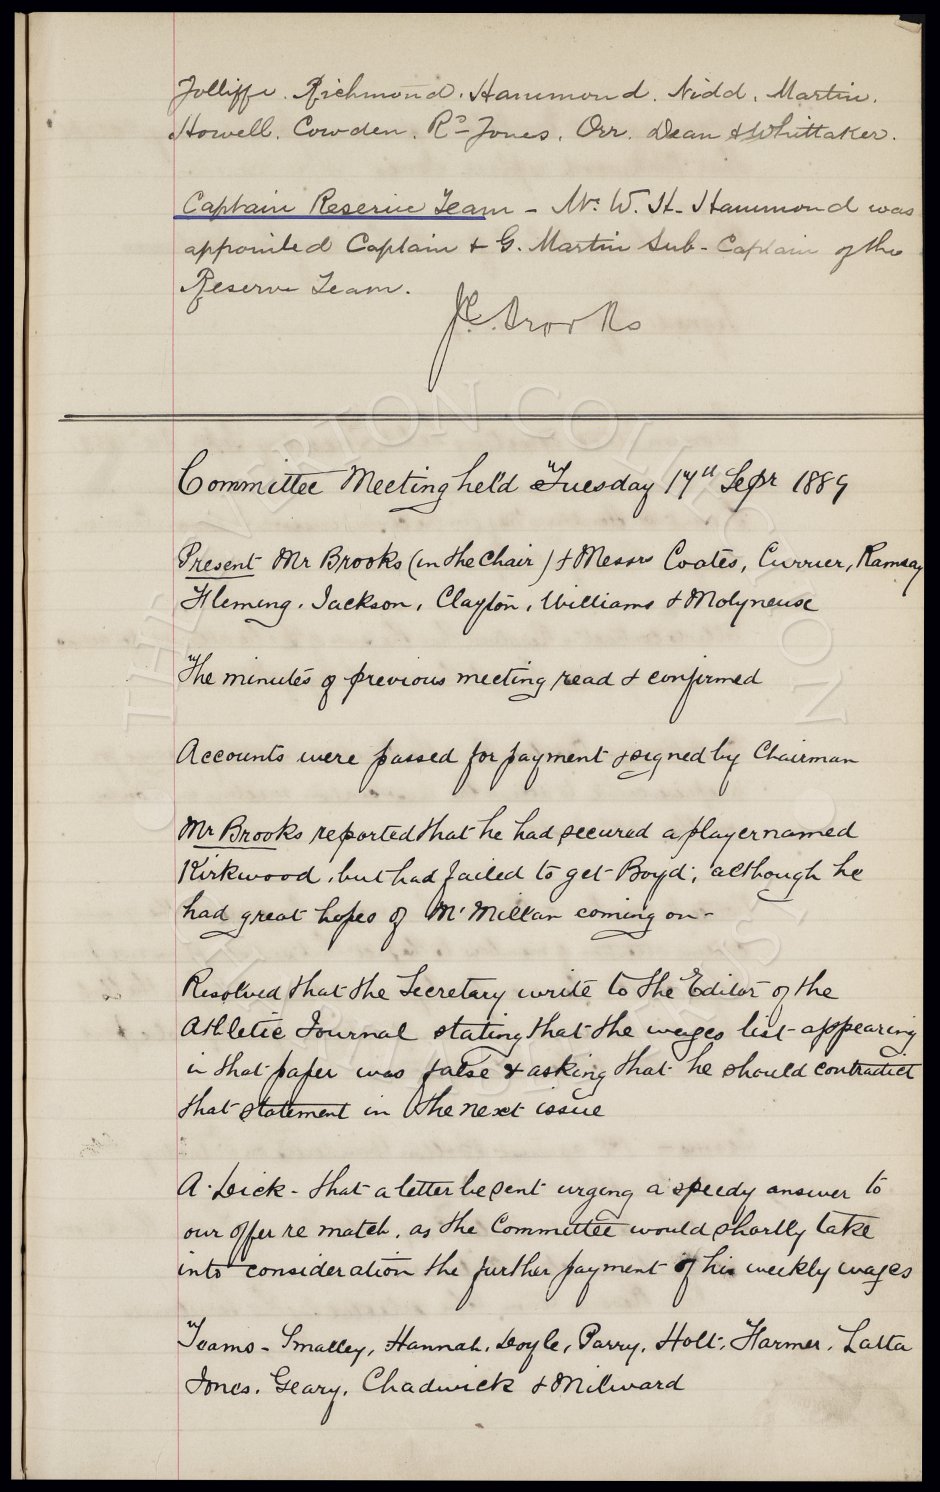 Jolliffe. Richmond. Hammond. Nidd. Martin.
Howell. Cowden. Rd Jones. Orr. Dean & Whittaker.
Captain Reserve Team - Mr. W. H. Hammond was
appointed Captain & G. Martin Sub-Captain of the
Reserve Team.
J.C. Brooks
Committee Meeting held Tuesday 17th Sepr 1889
Present Mr Brooks (in the Chair) & Messrs Coates, Currier, Ramsay
Fleming. Jackson, Clayton, Williams & Molyneux
The minutes of previous meeting read & confirmed
Accounts were passed for payment & signed by Chairman
Mr Brooks reported that he had secured a player named
Kirkwood, but had failed to get Boyd, although he
had great hopes of McMillan coming on -
Resolved that the Secretary write to the Editor of the
Athletic Journal stating that the wages list appearing
in that paper was false & asking that he should contradict
that statement in the next issue
A. Dick - that a letter be sent urging a speedy answer to
our offer re match, as the Committee would shortly take
into consideration the further payment of his weekly wages
Teams - Smalley, Hannah, Doyle, Parry, Holt, Farmer, Latta
Jones. Geary, Chadwick & Milward
THE EVERTON COLLECTION